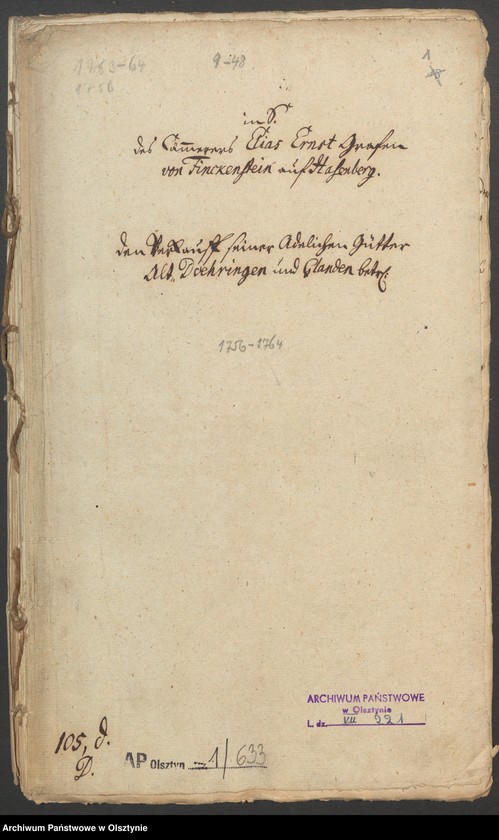 1763-64
1756
9-48.
1
in S.
des Cämmerers Elias Ernst Grafen
von Finckenstein auf Hasenberg.
den Verkauff seiner Adelichen Gütter
Alt Doehringen und Glanden betr.
1756-1764
105, d.
D.
AP Olsztyn 1/633
ARCHIWUM PAŃSTWOWE
w Olsztynie
L. dz. VII 921
Archiwum Państwowe w Olsztynie